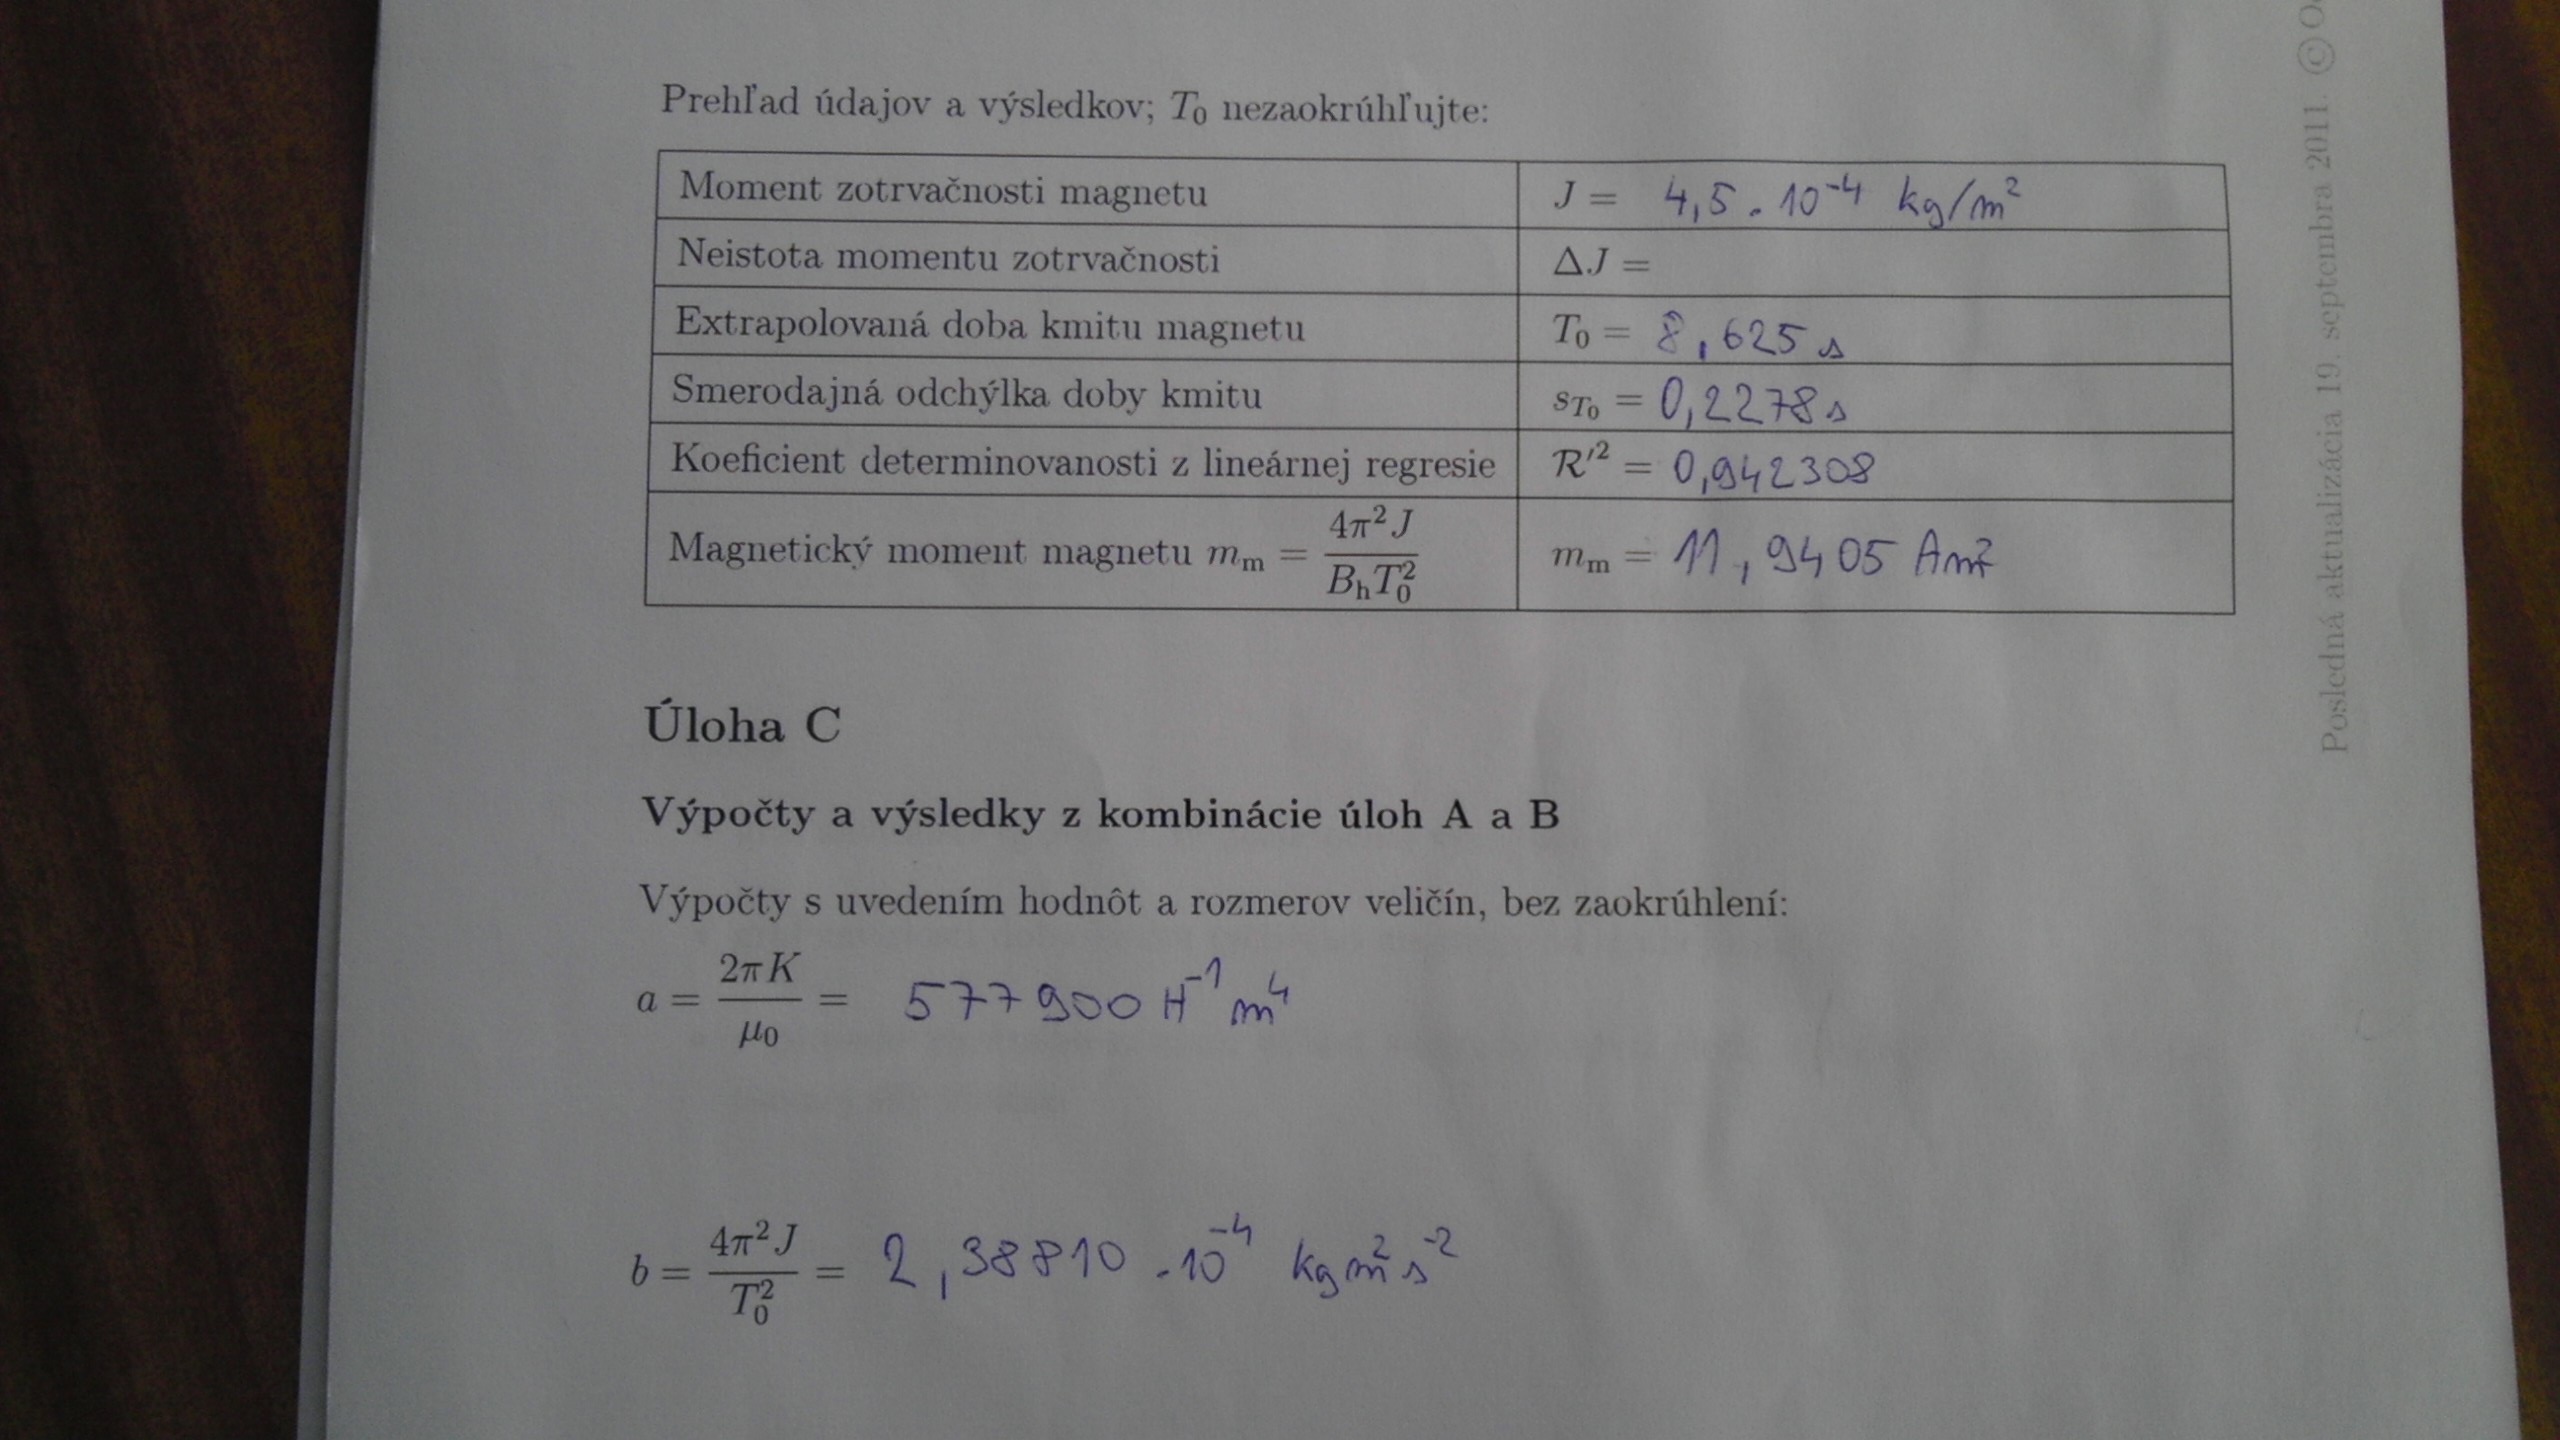 Prehľad údajov a výsledkov; T₀ nezaokrúhľujte:
Moment zotrvačnosti magnetu J = 4,5 . 10⁻⁴ kg/m²
Neistota momentu zotrvačnosti ΔJ =
Extrapolovaná doba kmitu magnetu T₀ = 8,625 s
Smerodajná odchýlka doby kmitu s_T₀ = 0,2278 s
Koeficient determinovanosti z lineárnej regresie R′² = 0,942308
Magnetický moment magnetu mₘ = 4π²J / BₕT₀² mₘ = 11,9405 Am²
Úloha C
Výpočty a výsledky z kombinácie úloh A a B
Výpočty s uvedením hodnôt a rozmerov veličín, bez zaokrúhlení:
a = 2πK / μ₀ = 577900 H⁻¹ m⁴
b = 4π²J / T₀² = 2,38810 . 10⁻⁴ kg m² s⁻²
Posledná aktualizácia 19. septembra 2011. ©